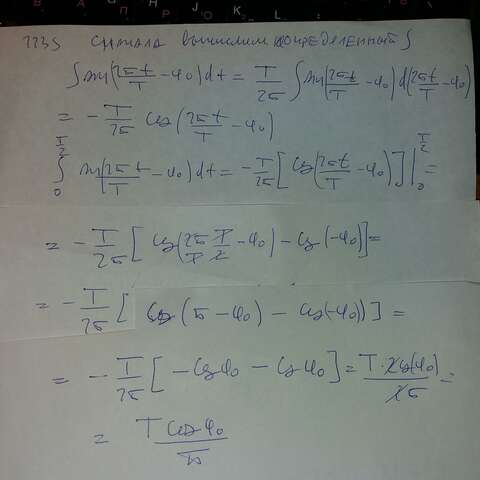 2235 сначала вычислим неопределенный ∫
∫ sin(2πt/T − φ₀) dt = T/2π ∫ sin(2πt/T − φ₀) d(2πt/T − φ₀)
= − T/2π cos(2πt/T − φ₀)
∫₀^(T/2) sin(2πt/T − φ₀) dt = − T/2π [cos(2πt/T − φ₀)]|₀^(T/2) =
= − T/2π [cos(2π/T T/2 − φ₀) − cos(−φ₀)] =
= − T/2π [cos(π − φ₀) − cos(−φ₀))] =
= − T/2π [−cosφ₀ − cosφ₀] = T·2cos(φ₀)/2π =
= T cosφ₀/π